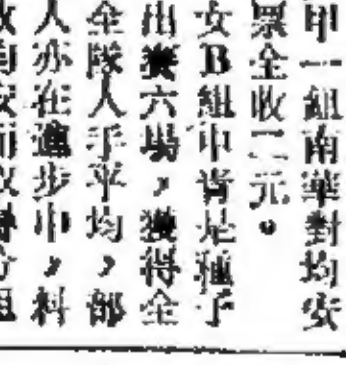 甲一組南華對均安
票全收二元。
女B組中青是種子
出賽六場，獲得全
全隊人手平均，部
人亦在進步中，料